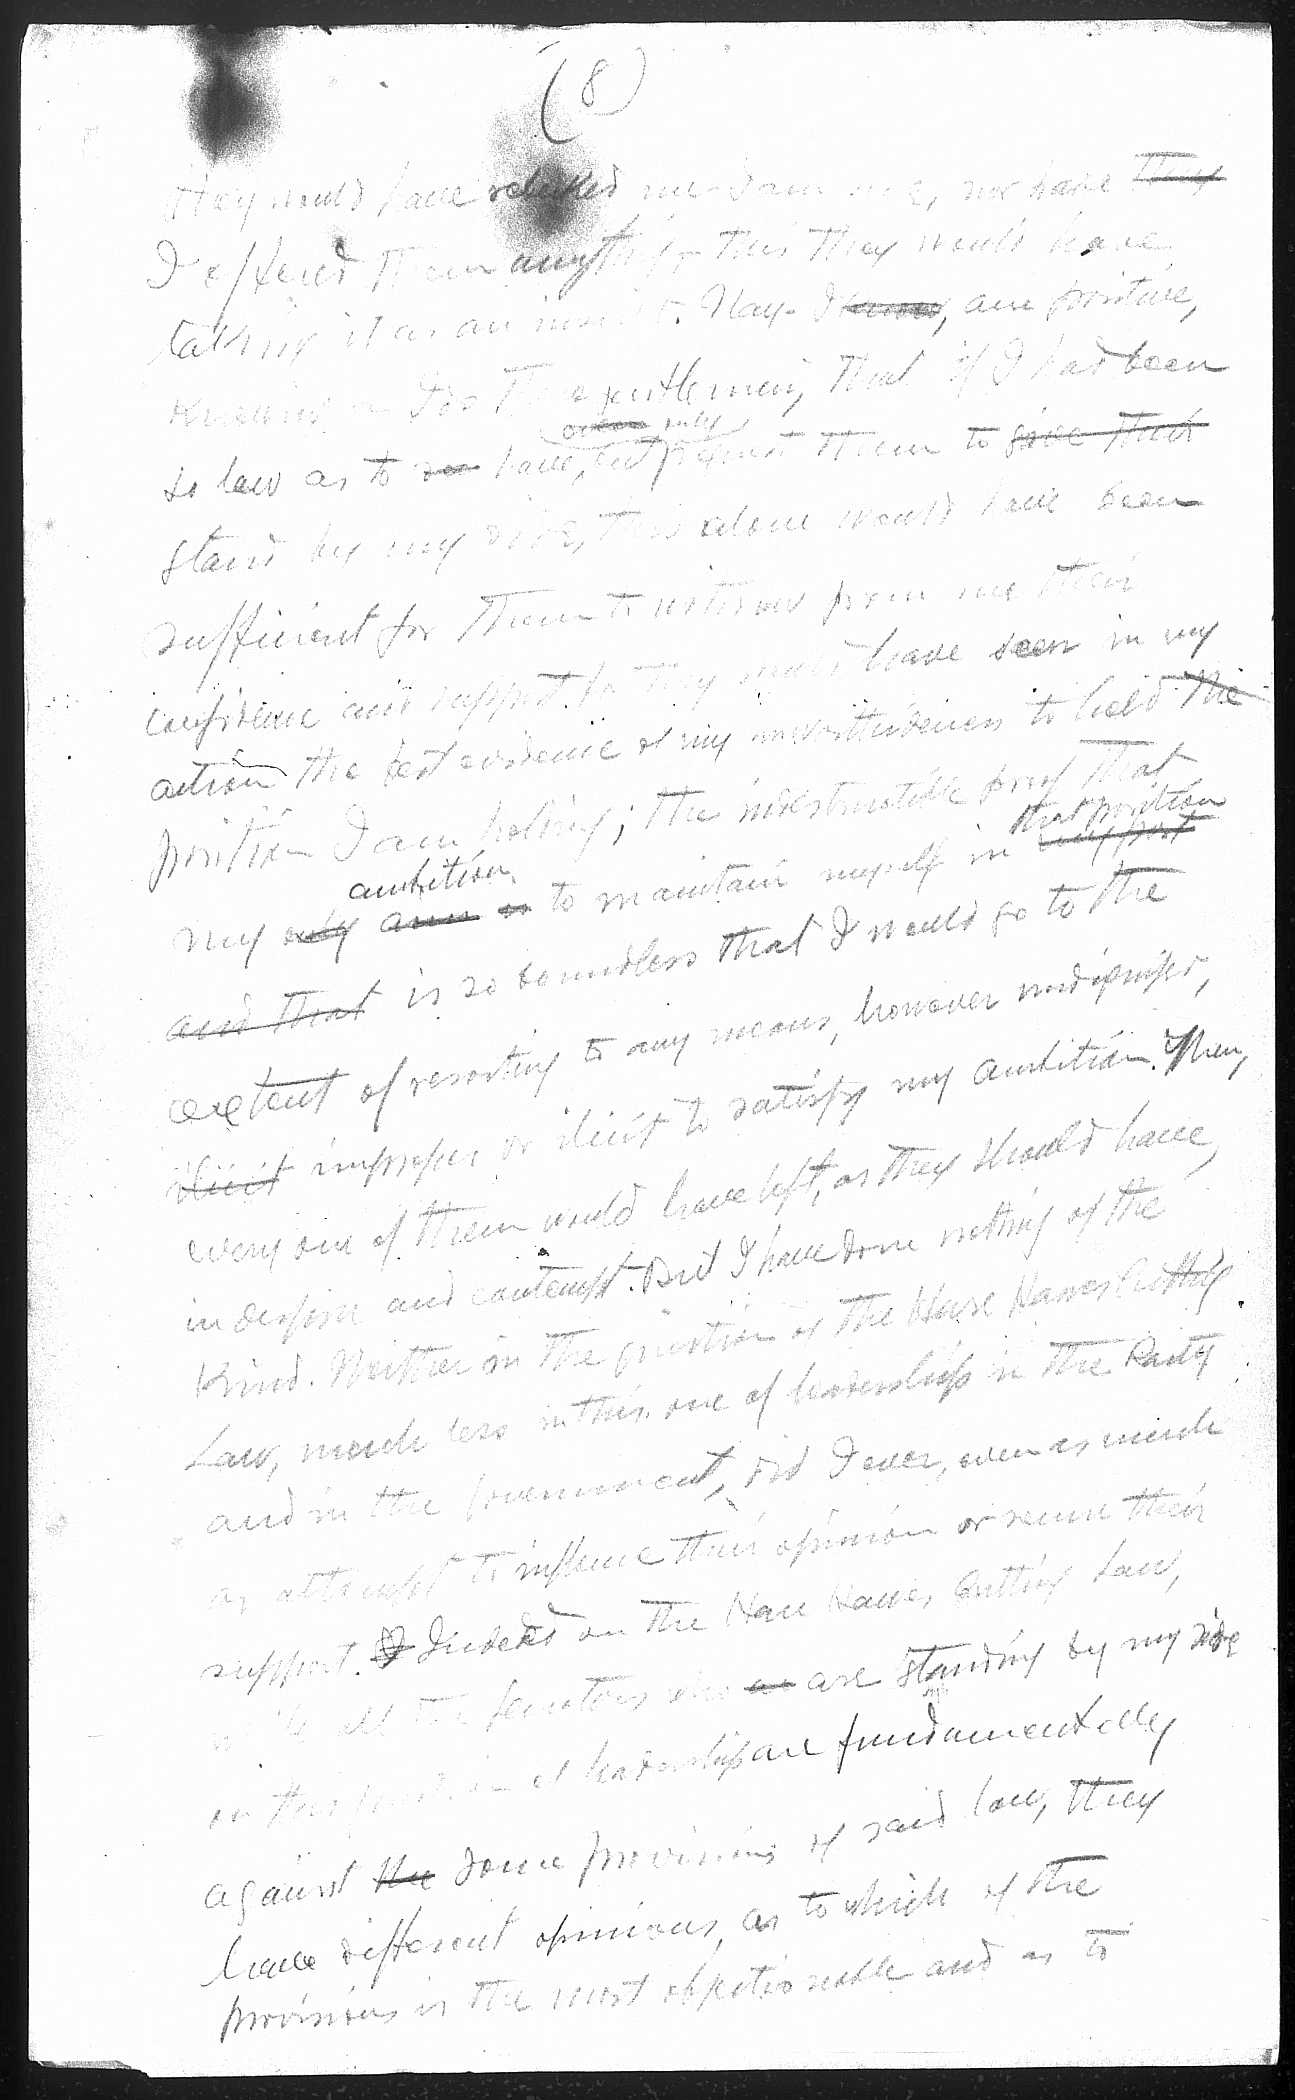 (8)
they would have rebuked me
I offered them anything for this they would have
taking it as an insult. Nay - I know, am positive,
knowing as I do these gentlemen, that if I had been
so low as to have, even only, request them to give their
stand by my side, this alone would have been
sufficient for them to withdraw from me their
confidence and support for they would have seen in my
action the best evidence of my unworthiness to hold the
position I am holding; the indestructible proof that
that position
my only aim is to maintain myself in my post
ambition
and that is so boundless that I would go to the
extent of resorting to any means, however undignified,
illicit improper or ilicit to satisfy my ambition. Then,
every one of them would have left, as they should have,
in despise and contempt. But I have done nothing of the
kind. Neither in the question of the Hare Hawes Cutting
Law, much less in this one of leadership in the Party
and in the government, did I ever, even as much
as attempt to influence their opinion or secure their
support. I Indeed on the Hare Hawes Cutting Law,
while all the senators who are standing by my side
on this question of leadership are fundamentally
against the some provisions of said law, they
have different opinions, as to which of the
provisions is the most objectionable and as to